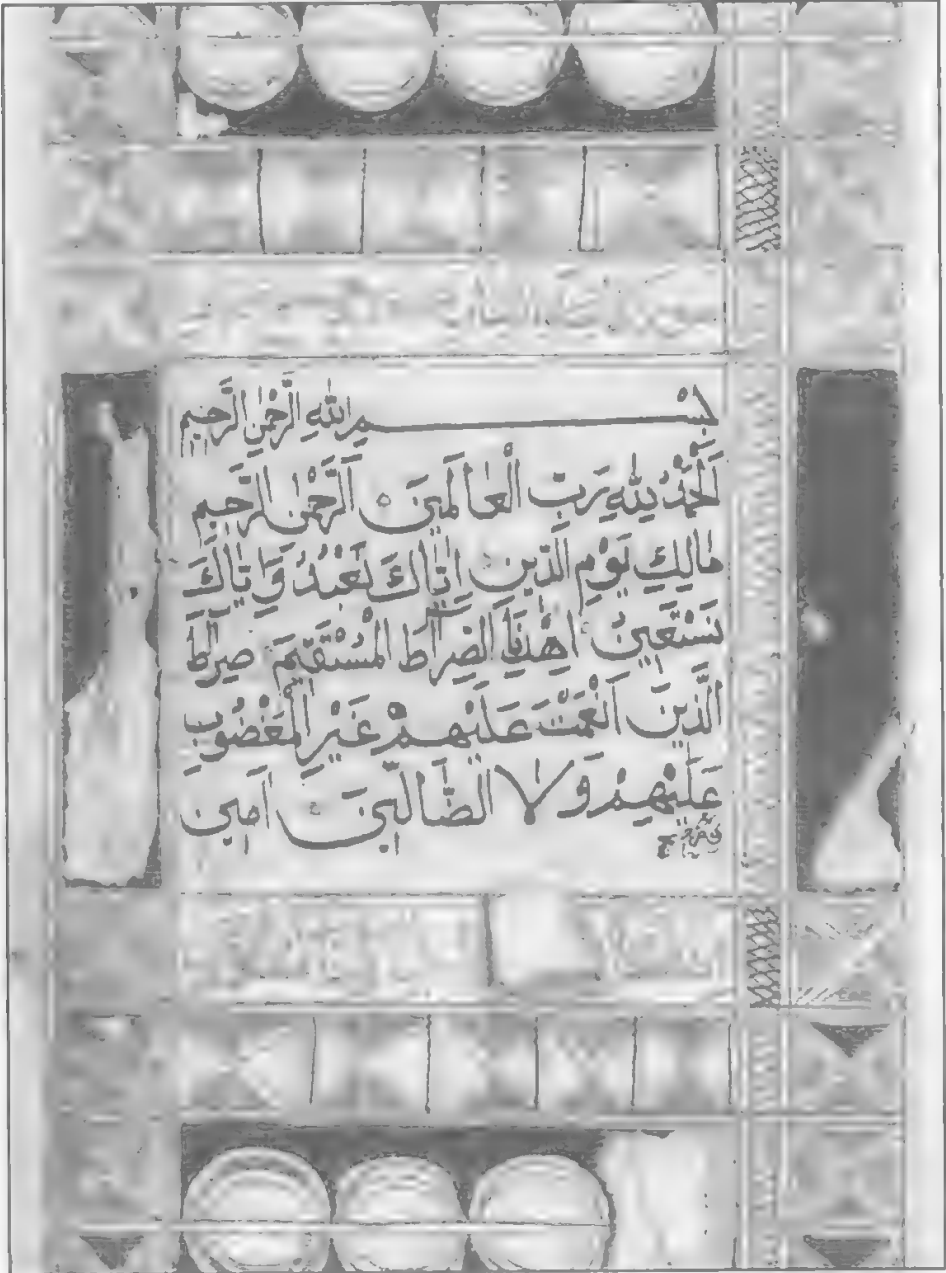 بِسْمِ اللّٰهِ الرَّحْمٰنِ الرَّحِيمِ
اَلْحَمْدُ لِلّٰهِ رَبِّ الْعَالَمِينَ الرَّحْمٰنِ الرَّحِيمِ
مَالِكِ يَوْمِ الدِّينِ اِيَّاكَ نَعْبُدُ وَاِيَّاكَ
نَسْتَعِينُ اِهْدِنَا الصِّرَاطَ الْمُسْتَقِيمَ صِرَاطَ
الَّذِينَ اَنْعَمْتَ عَلَيْهِمْ غَيْرِ الْمَغْضُوبِ
عَلَيْهِمْ وَلَا الضَّالِّينَ اٰمِين